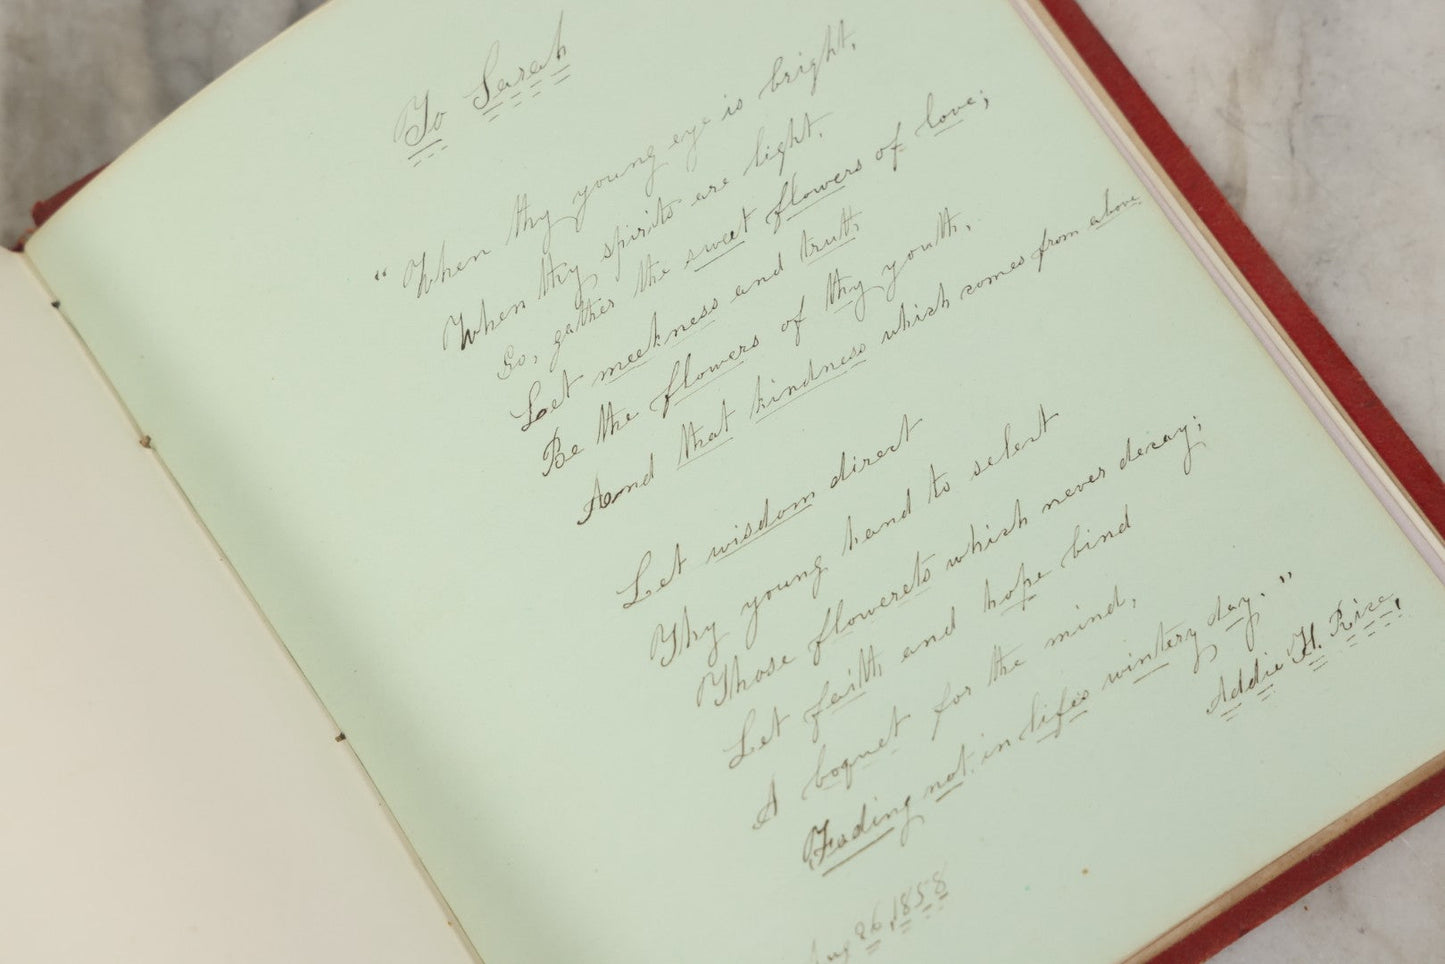 To Sarah
"When thy young eye is bright,
When thy spirits are light,
Go, gather the sweet flowers of love;
Let meekness and truth
Be the flowers of thy youth,
And that kindness which comes from above
Let wisdom direct
Thy young hand to select
Those flowerets which never decay;
Let faith and hope bind
A boquet for the mind,
Fading not in life's wintery day."
Addie H. Rice,
Aug 26, 1858